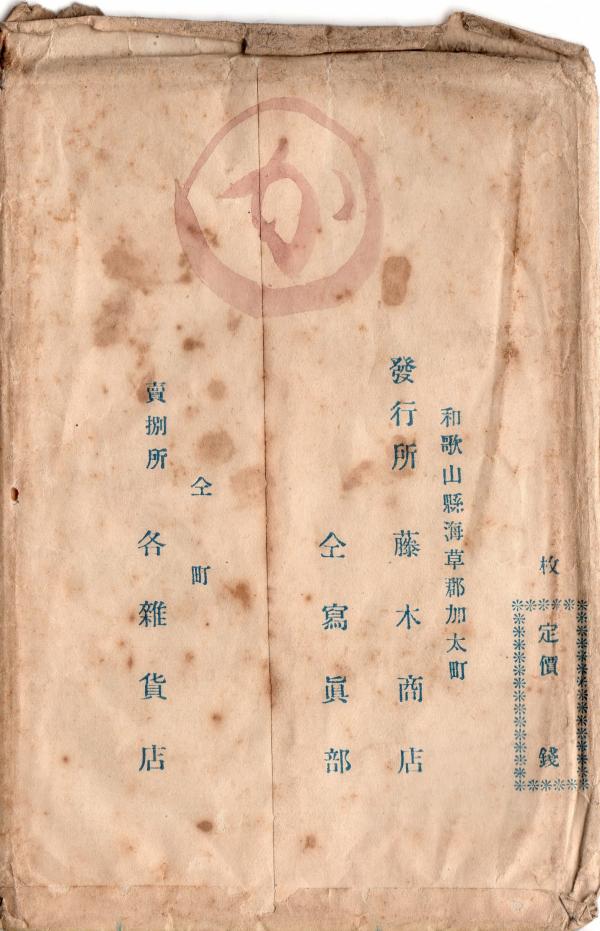 か
枚
定價 錢
和歌山縣海草郡加太町
發行所 藤木商店
仝寫眞部
仝町
賣捌所 各雜貨店